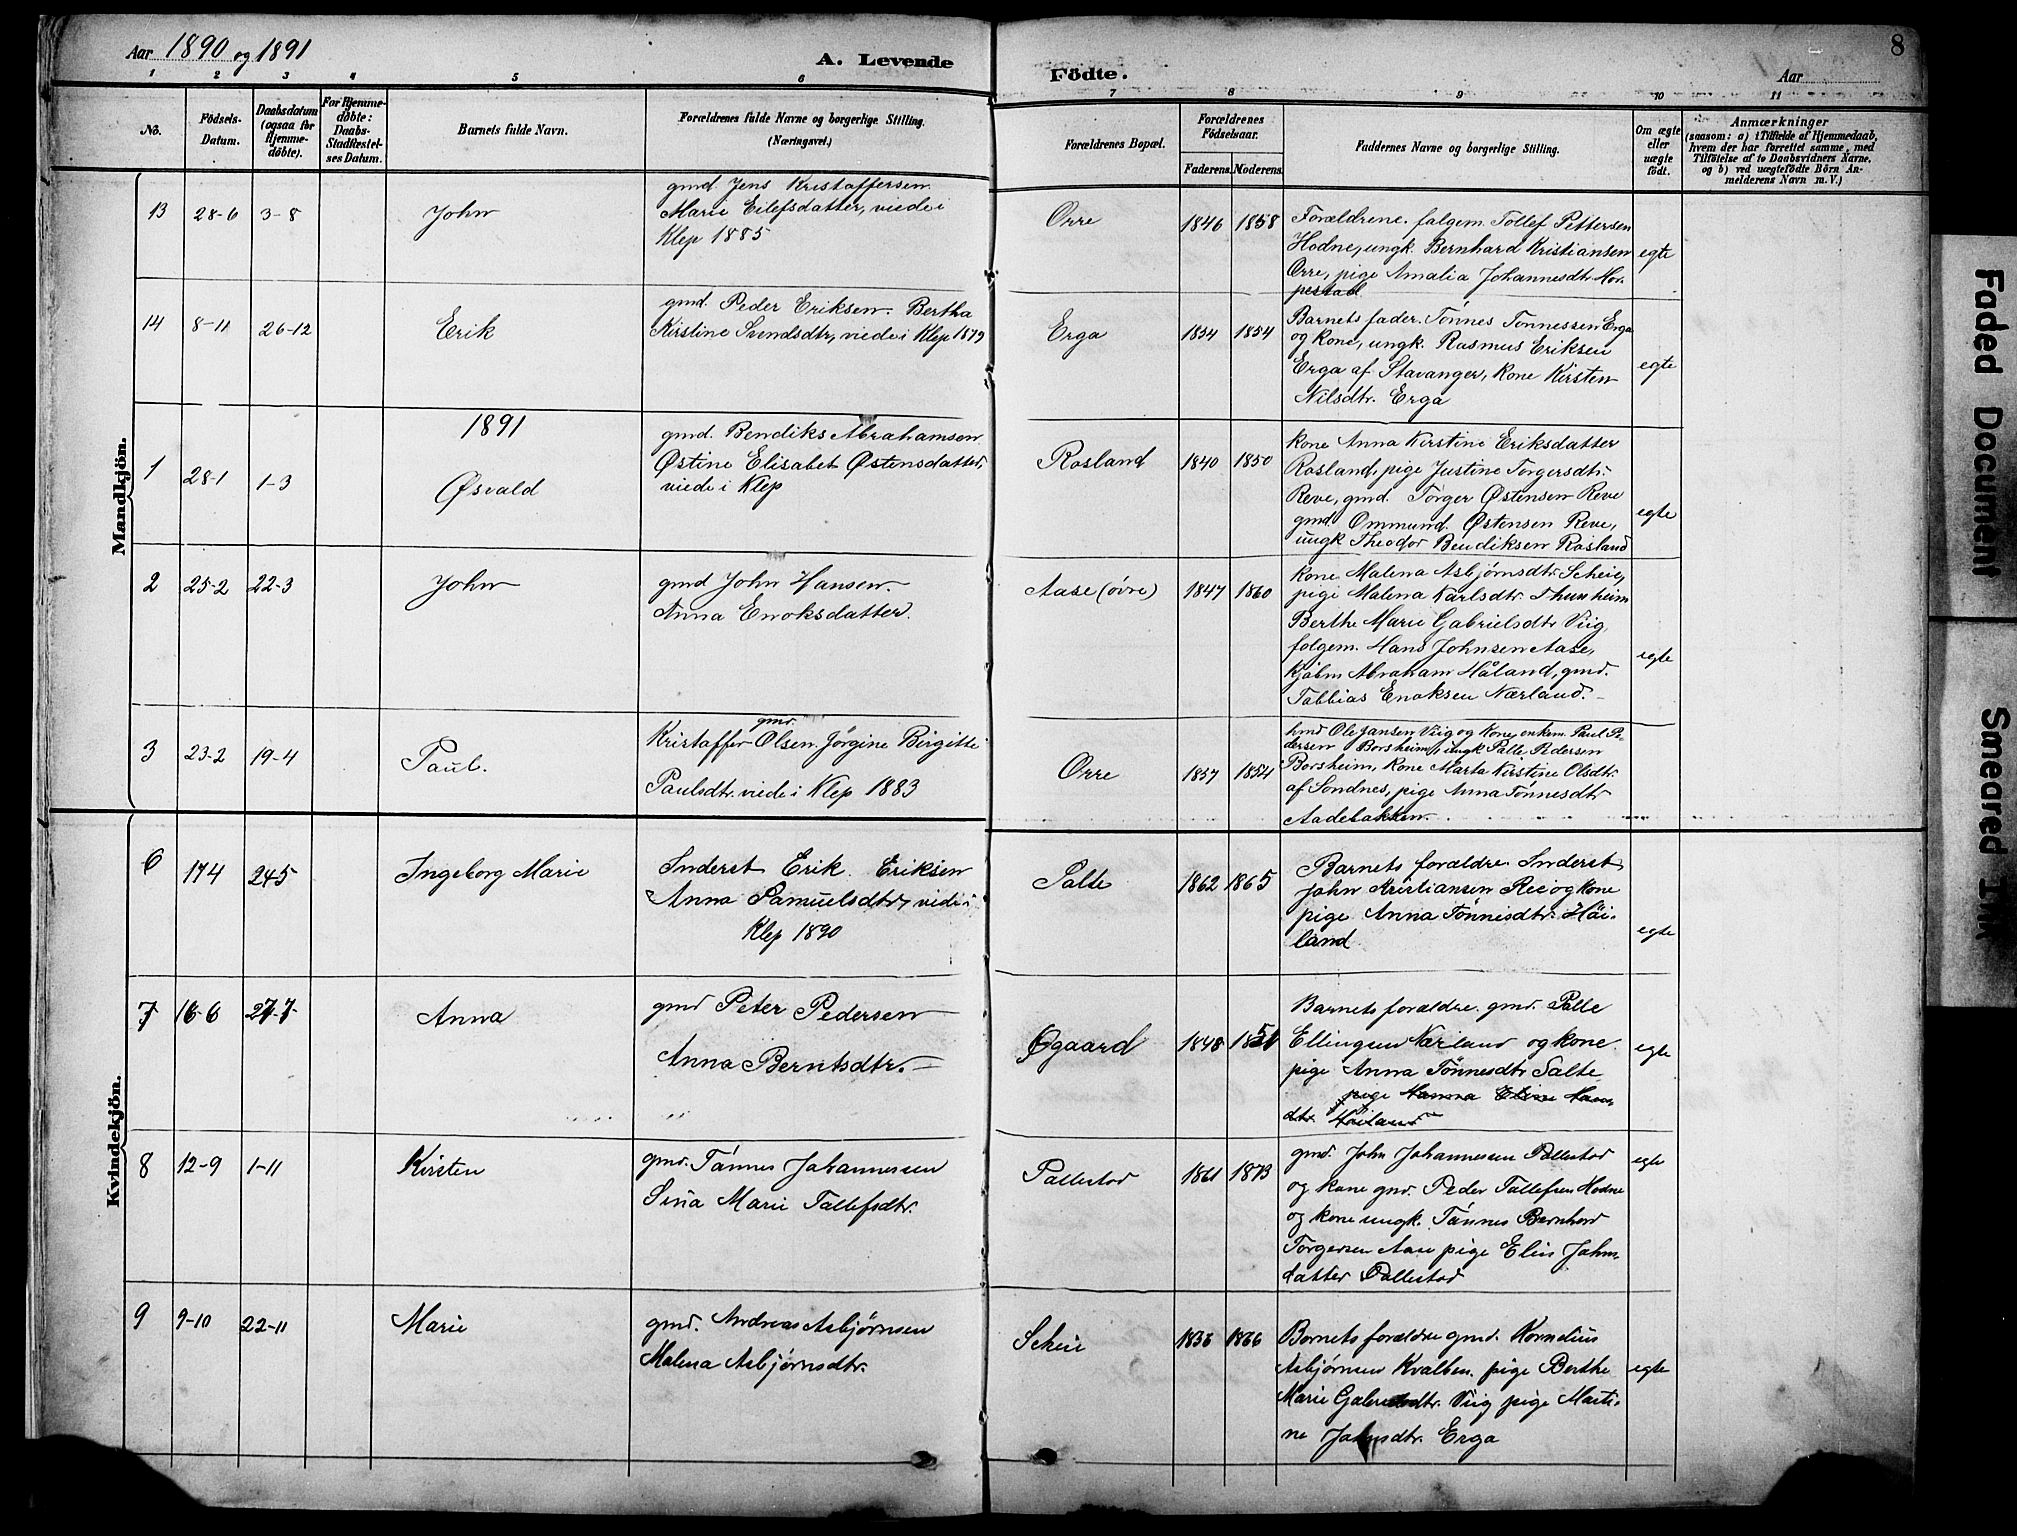 Aar 1890 og 1891
A. Levende
Födte.
Aar
8
1 2 3 4 5 6 7 8 9 10 11
No.
Födsels-
Datum.
Daabsdatum
(ogsaa for
Hjemme-
döbte).
For Hjemme-
döbte:
Daabs-
Stadfæstel-
ses Datum.
Barnets fulde Navn.
Forældrenes fulde Navne og borgerlige Stilling.
(Næringsvei.)
Forældrenes Bopæl.
Forældrenes
Födselsaar.
Faderens. Moderens.
Faddernes Navne og borgerlige Stilling.
Om ægte
eller
uægte
födt.
Anmærkninger
(saasom: a) i Tilfælde af Hjemmedaab,
hvem der har forrettet samme, med
Tilföielse af to Daabsvidners Navne,
og b) ved uægtefödte Börn An-
melderens Navn m. V.)
Mandkjön.
13 28-6 3-8 John
gmd. Jens Kristaffersen.
Marie Eilefsdatter, viede i
Klep 1885
Orre 1846 1858
Forældrene. følgem. Tollef Pettersen
Hodne, ungk. Bernhard Kristiansen
Orre, pige Amalia Johannesdtr. Hor-
pestad
egte
14 8-11 26-12 Erik
gmd. Peder Eriksen. Bertha
Kirstine Svendsdtr, viede i Klep 1879
Erga 1854 1854
Barnets fader. Tönnes Tönnessen Erga
og kone, ungk. Rasmus Eriksen
Erga af Stavanger, kone Kirsten
Nilsdtr. Erga
egte
1891
1 28-1 1-3 Øsvald
gmd. Bendiks Abrahamsen
Østine Elisabet Østensdatter,
viede i Klep
Rosland 1840 1850
Kone Anna Kirstine Eriksdatter
Rosland, pige Justine Torgersdtr.
Reve, gmd. Törger Østensen Reve
gmd. Ommund. Østensen Reve,
ungk Theodor Bendiksen Rosland
egte
2 25-2 22-3 John
gmd John Hansen.
Anna Enoksdatter.
Aase (övre) 1847 1860
Kone Malena Asbjørnsdtr. Scheie,
pige Malena Karlsdtr. Thunheim
Berthe Marie Gabrielsdtr Viig,
følgem. Hans Johnsen Aase,
Kjöbm Abraham Håland, gmd.
Tobbias Enoksen Nærland.
egte
3 23-2 19-4 Paul.
gmd.
Kristaffer Olsen. Jörgine Birgitte
Paulsdtr. viede i Klep 1883
Orre 1857 1854
hmd Ole Jansen Viig og Kone, enkem. Paul Pe-
dersen Borsheim, ungk Palle Pedersen
Borsheim, Kone Marta Kirstine Olsdtr.
af Sondnes, pige Anna Tönnesdtr
Aadebakken.
Kvindekjön.
6 17-4 24-5 Ingeborg Marie
Inderst Erik. Eriksen
Anna Samuelsdtr, viede i
Klep 1890
Salte 1862 1865
Barnets forældre. Inderst
John Kristiansen Rei og Kone
pige Anna Tönnesdtr. Häi-
land.
egte
7 16-6 27-7 Anna
gmd Peter Pedersen
Anna Berntsdtr.
Øgaard 1848
Barnets forældre. gmd. Palle
Ellingsen Nærland og kone.
pige Anna Tönnesdtr Salte
pige Hanna Eline Han,
dtr. Höiland
egte
8 12-9 1-11 Kirsten
gmd. Tännes Johannessen
Sina Marie Tallefsdtr.
Pallestad 1861 1873
gmd. John Johannessen Pallestad
og kone gmd. Peder Tallefsen Hodne
og kone ungk. Tännes Bernhard
Torgersen Aase pige Elen Jahn-
datter Pallestad
egte
9 9-10 22-11 Marie
gmd. Andreas Asbjørnsen
Malena Asbjørnsdtr.
Scheie
Barnets forældre gmd. Kornelius
Asbjørnsen Kvalben. pige Berthe
Marie Gabrielsdtr. Viig pige Marti-
ne Jahnsdtr. Erga
egte
Faded Document
Smeared Ink